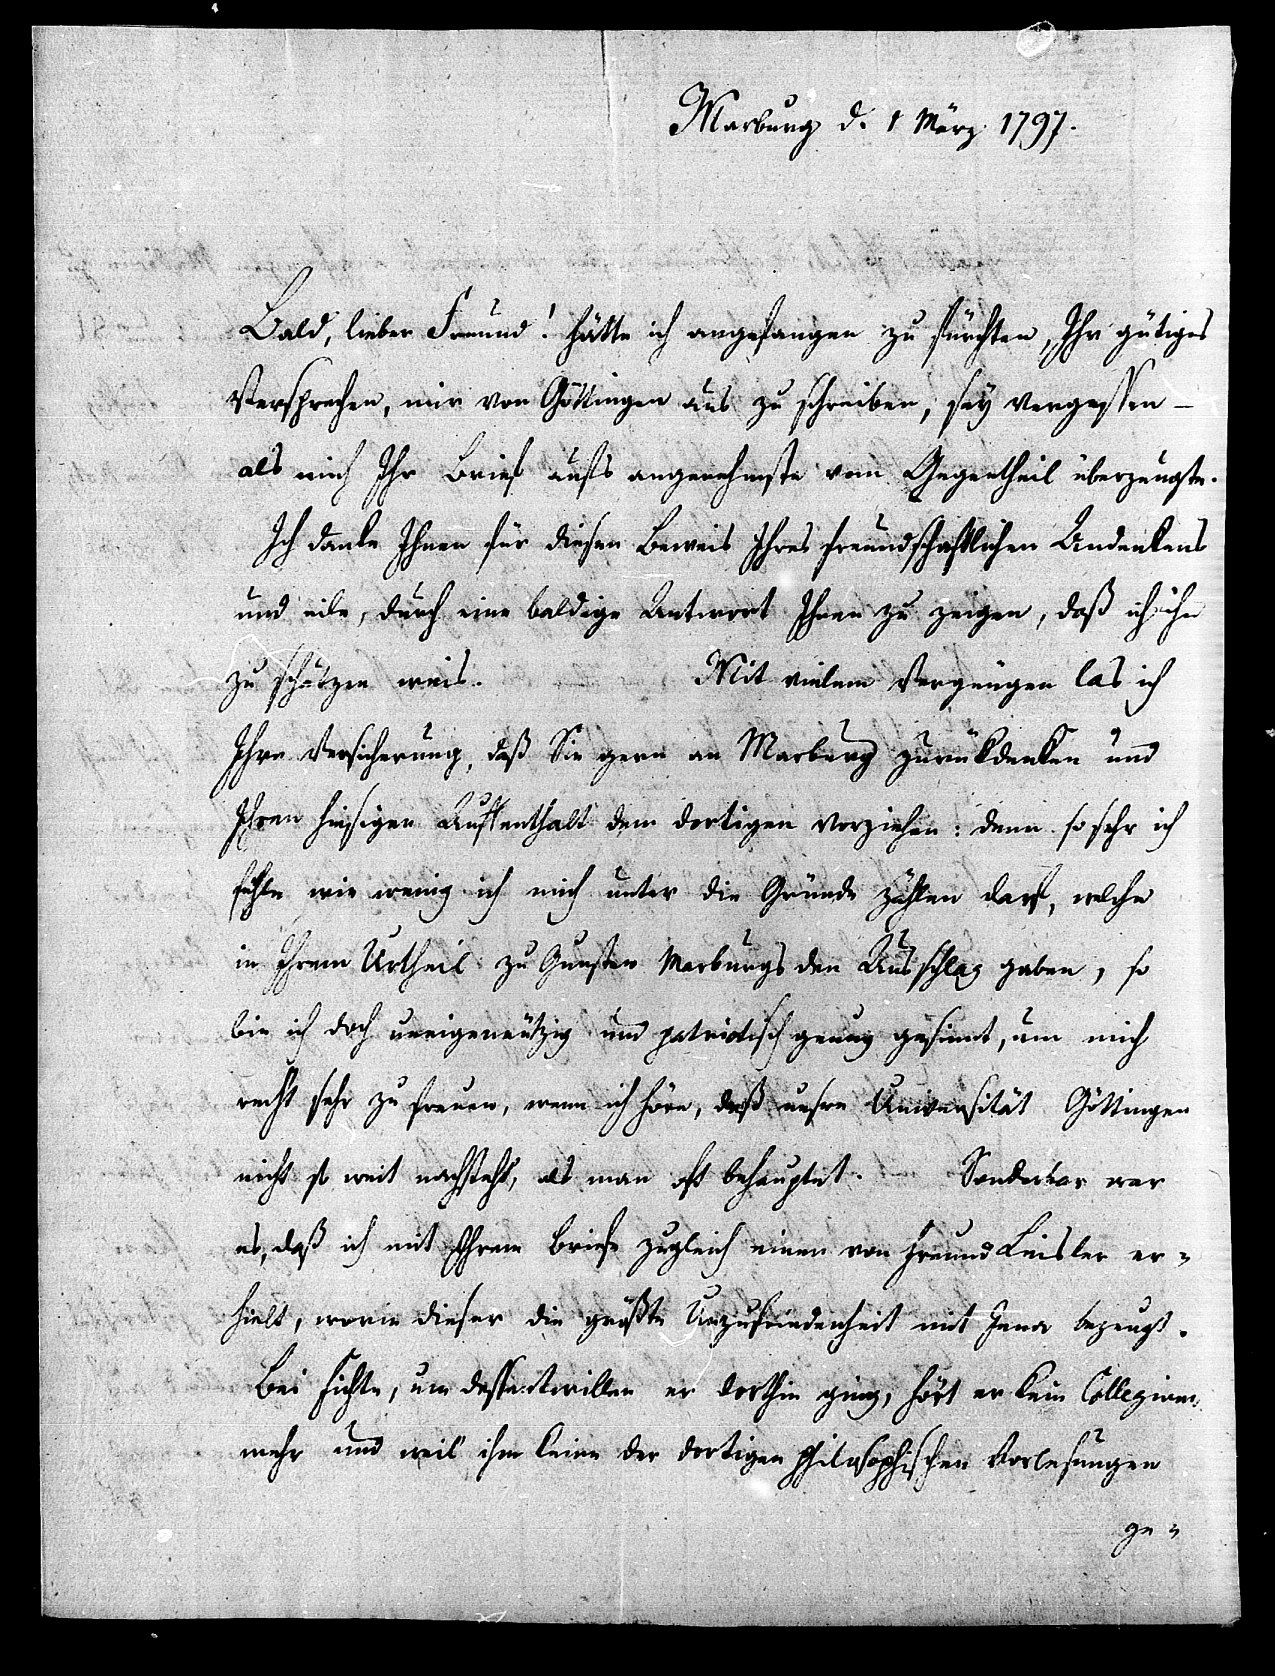 Marburg d. 1 März 1797.
Bald, lieber Freund! hätte ich angefangen zu fürchten, Ihr gütiges
Versprechen, mir von Göttingen aus zu schreiben, sey vergessen –
als mich Ihr Brief aufs angenehmste vom Gegentheil überzeugte.
Ich danke Ihnen für diesen Beweis Ihres freundschaftlichen Andenkens
und eile, durch eine baldige Antwort Ihnen zu zeigen, daß ich ihn
zu schätzen weis. Mit vielem Vergnügen las ich
Ihre Versicherung, daß Sie gern an Marburg zurükdenken und
Ihren hiesigen Auffenthalt dem dortigen vorziehen: denn so sehr ich
fühle wie wenig ich mich unter die Gründe zählen darf, welche
in Ihrem Urtheil zu Gunsten Marburgs den Ausschlag gaben, so
bin ich doch uneigennützig und patriotisch genug gesinnt, um mich
recht sehr zu freuen, wenn ich höre, daß unsre Universität Göttingen
nicht so weit nachsteht, als man oft behauptet. Sonderbar war
es, daß ich mit Ihrem Briefe zugleich einen von Freund Leisler er=
hielt, worin dieser die größte Unzufriedenheit mit Jena bezeugt.
Bei Fichte, um dessentwillen er dorthin ging, hört er kein Collegium
mehr und weil ihm keine der dortigen philosophischen Vorlesungen
ge=